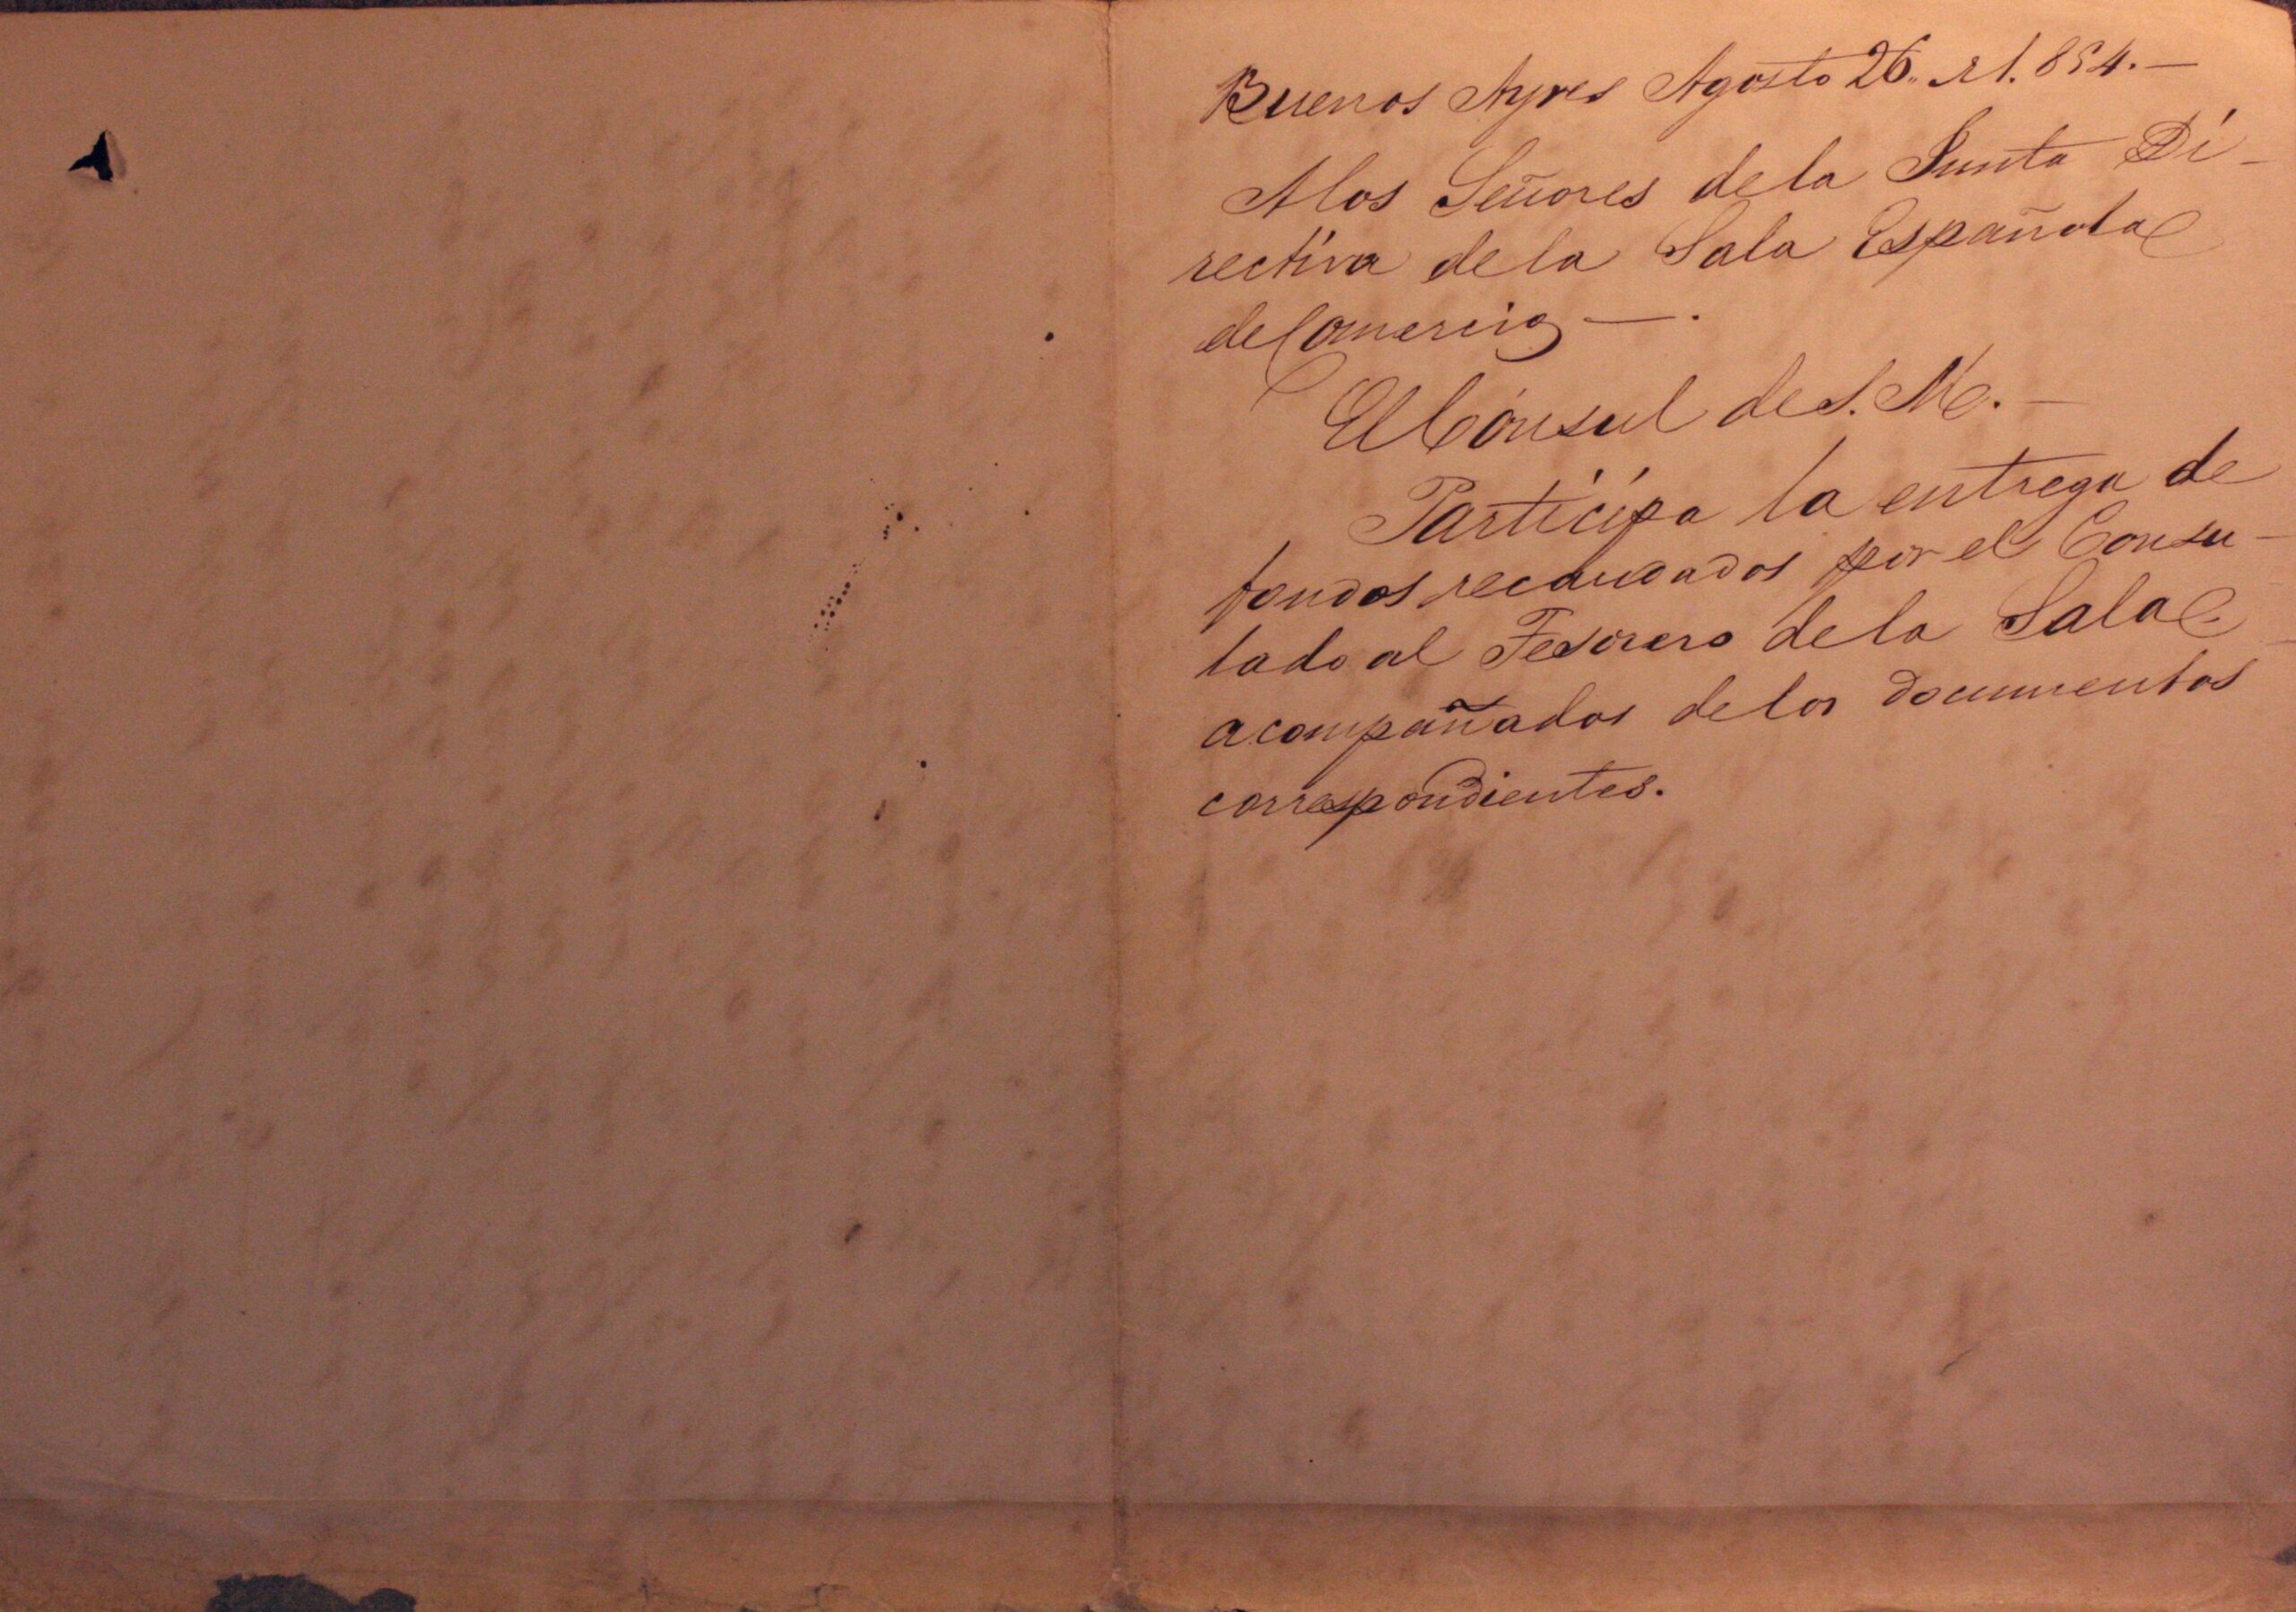 Buenos Ayres Agosto 26,, de 1.854.—
A los Señores de la Junta Di-
rectiva de la Sala Española
de Comercio —.
El Cónsul de S. M. —
Participa la entrega de
fondos recaudados por el Consu-
lado al Tesorero de la Sala
acompañados de los documentos
correspondientes.